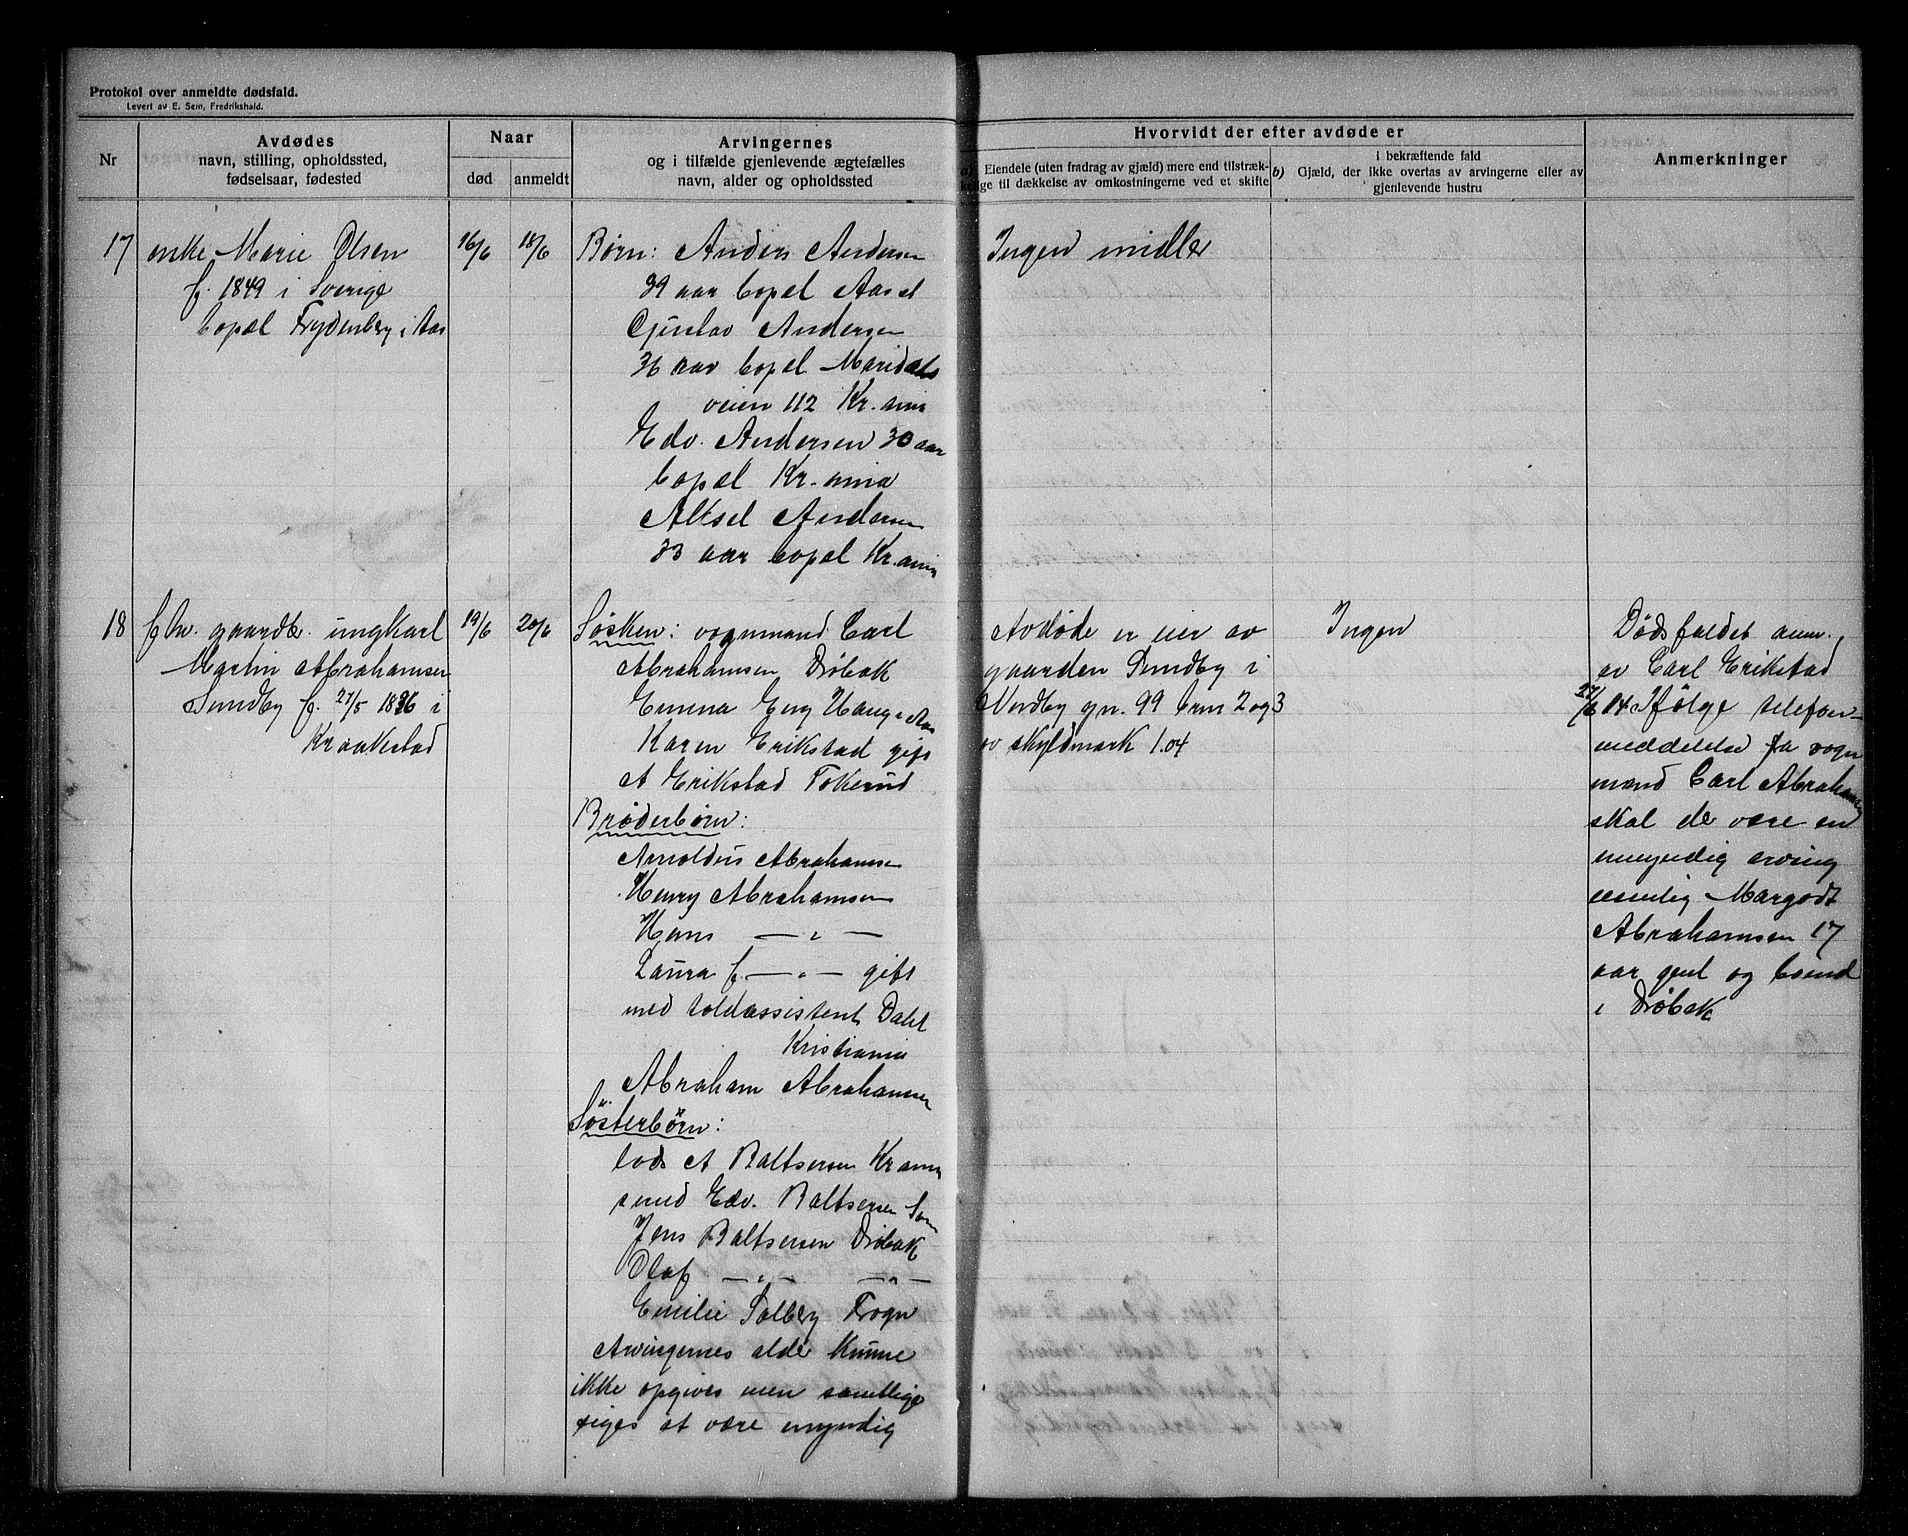 Protokol over anmeldte dødsfald.
Levert av E. Sem, Fredrikshald.
Nr
Avdødes
navn, stilling, opholdssted,
fødselsaar, fødested
Naar
død
anmeldt
Arvingernes
og i tilfælde gjenlevende ægtefælles
navn, alder og opholdssted
Hvorvidt der efter avdøde er
a) Eiendele (uten fradrag av gjæld) mere end tilstræk-
kelige til dækkelse av omkostningerne ved et skifte
i bekræftende fald
b) Gjæld, der ikke overtas av arvingerne eller av
gjenlevende hustru
Anmerkninger
17
enke Marie Olsen
f. 1849 i Sverige
bopæl Frydenberg i Aas
16/6
18/6
Børn: Anders Andersen
39 aar bopel Aas st
Gustav Andersen
36 aar bopel Maridals
veien 112 Kr.ania
Edv. Andersen 30 aar
bopæl Kr.ania
Aksel Andersen
33 aar bopel Kr.ania
Ingen midler
18
fhv. gaardbr. ungkarl
Martin Abrahamsen
Sundby f. 27/5 1836 i
Kraakstad
19/6
20/6
Søsken: vognmand Carl
Abrahamsen Drøbak
Emma Eng Haug i Aas
Karen Erikstad gift
A Erikstad Fokerud
Brøderbørn:
Arnoldus Abrahamsen
Henry Abrahamsen
Hans — " —
Laura f. — " — gift
med toldassistent Dahl
Kristiania
Abraham Abrahamsen
Søsterbørn:
lods A Baltsersen Kr.ania
smed Edv. Baltsersen Son
Jens Baltsersen Drøbak
Olaf — " — — " —
Emilie Solberg Frogn
Arvingernes alder kunne
ikke opgives men samtlige
siges at være myndig
Avdøde er eier av
gaarden Sundby i
Nordby gn. 99 brn 2 og 3
av skyldmark 1.04
Ingen
Dødsfaldet anm.
av Carl Erikstad
27/6 14 Ifølge telefon-
meddelelse fra vogn
mand Carl Abrahamsen
skal de være en
umyndig arving
nemlig Margodt
Abrahamsen 17
aar gml og boend
i Drøbak